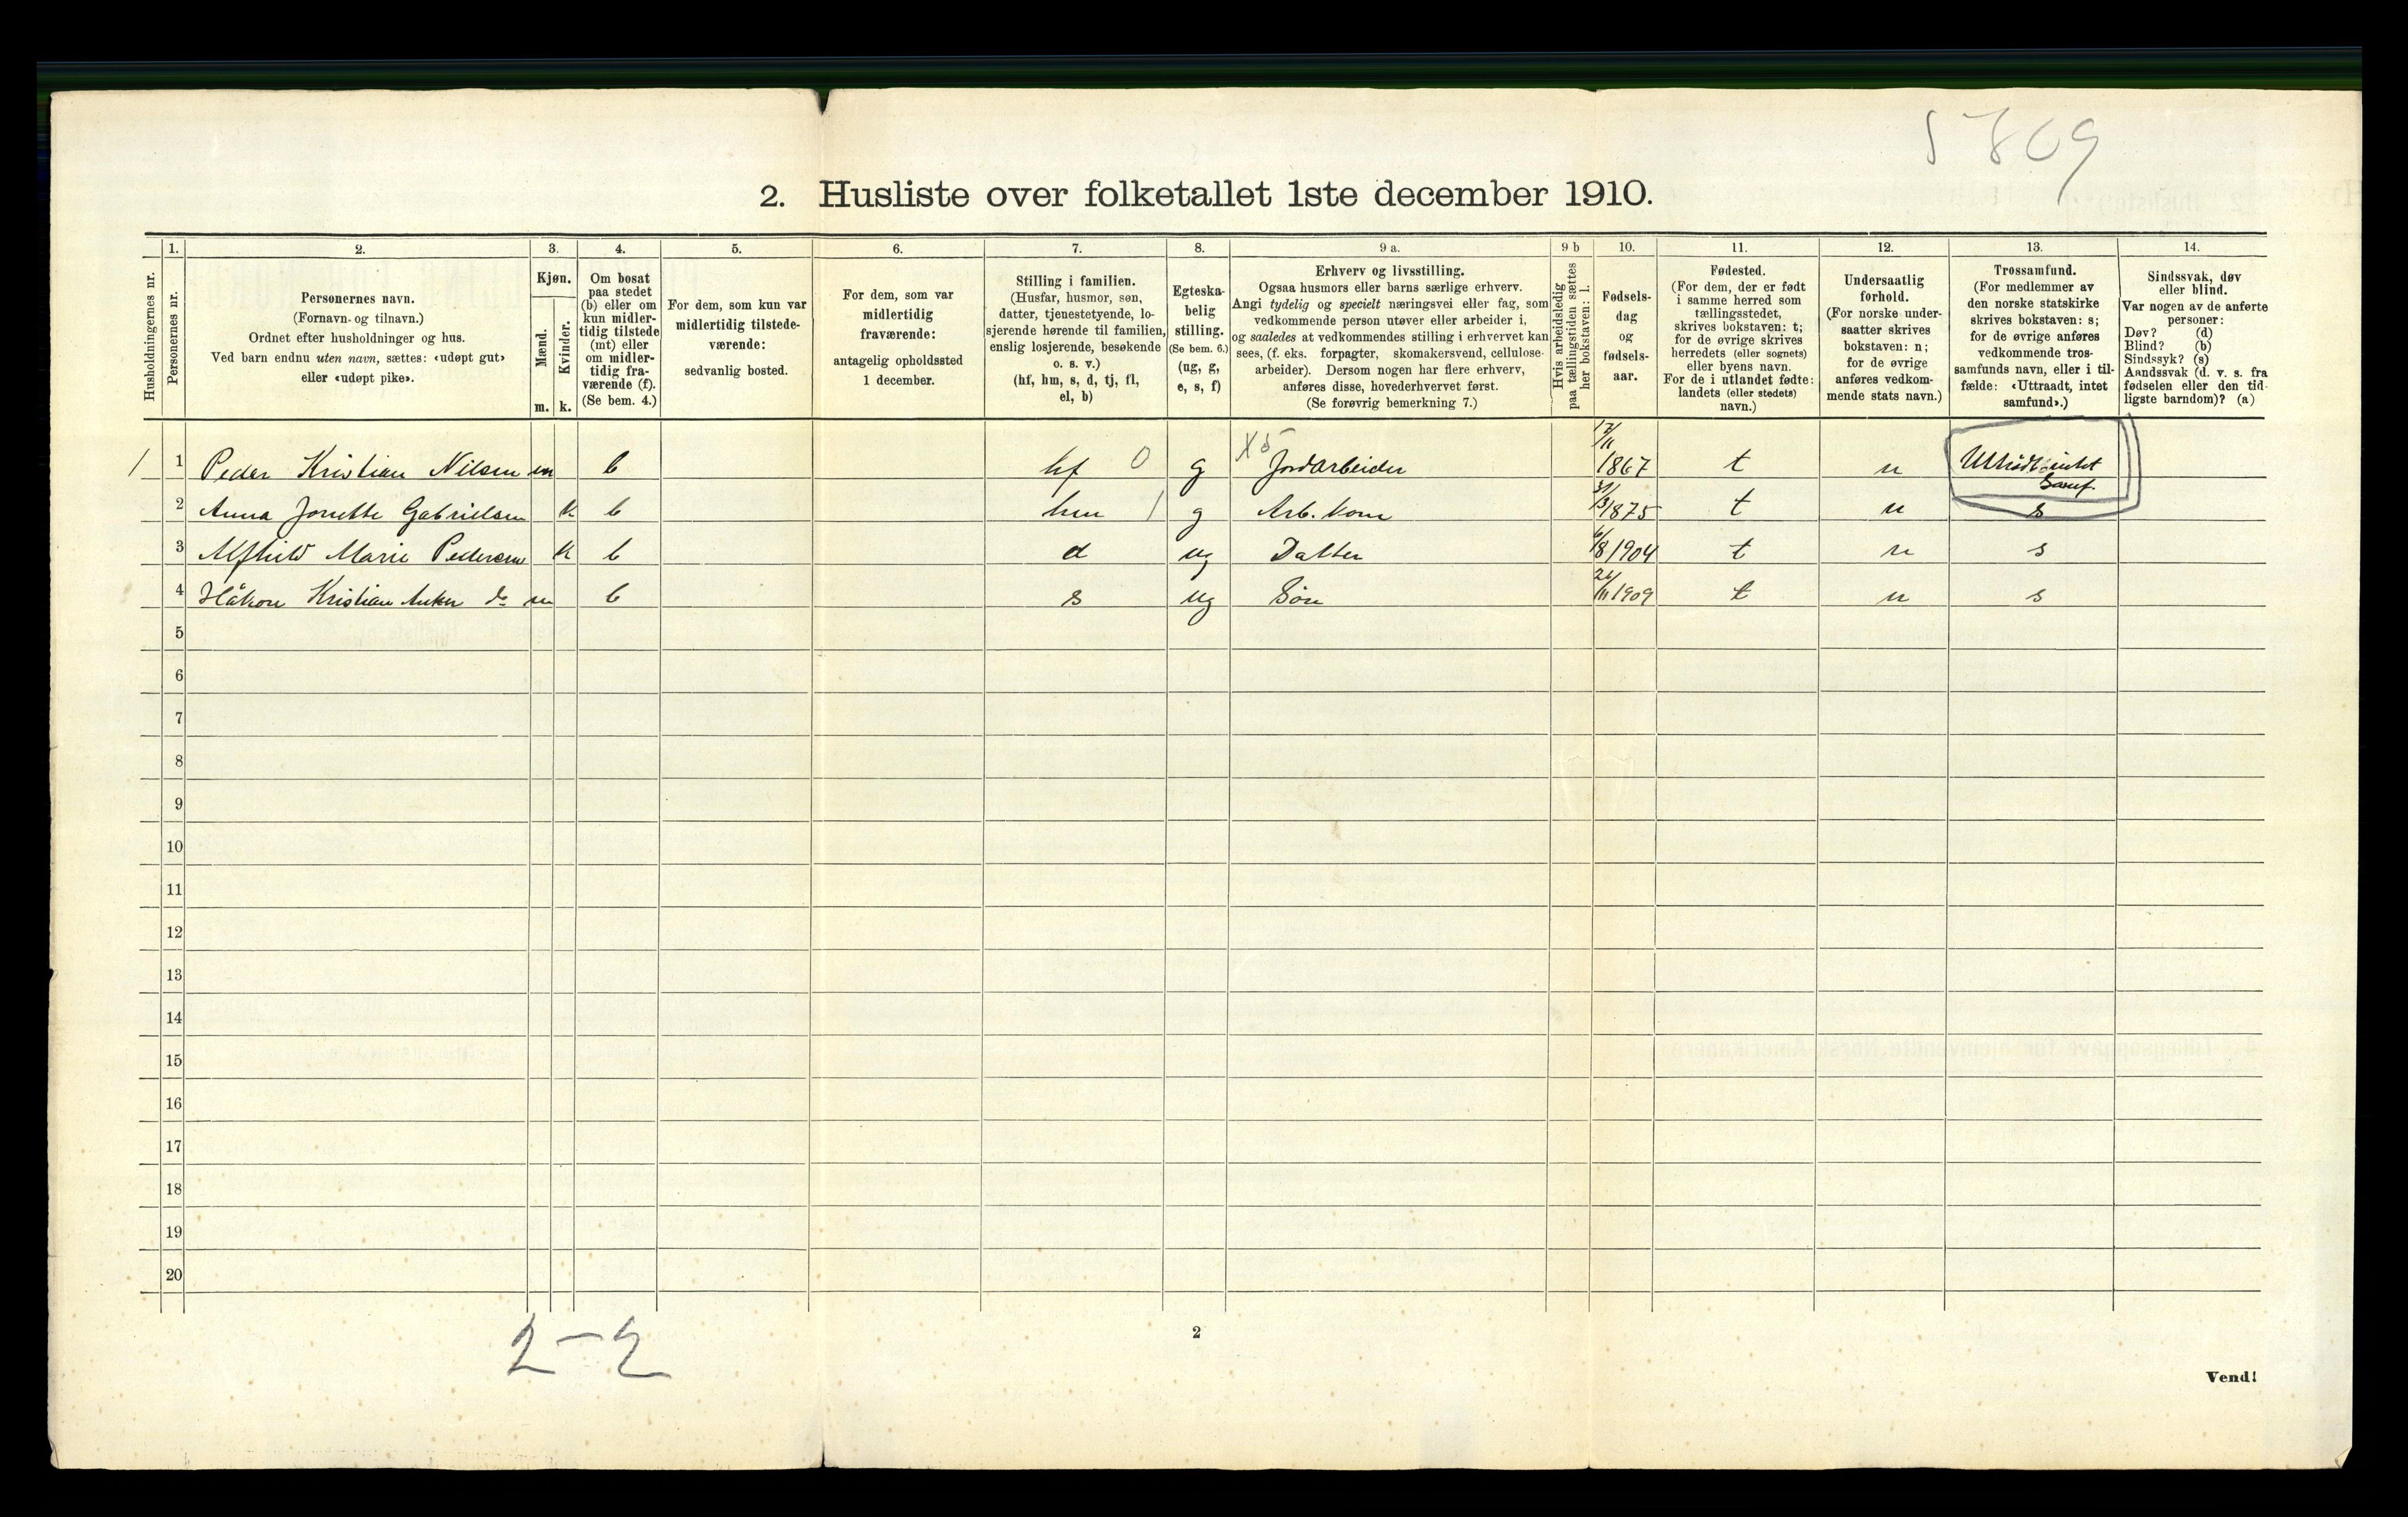 5809
2. Husliste over folketallet 1ste december 1910.
Husholdningernes nr.
1.
Personernes nr.
2.
Personernes navn.
(Fornavn og tilnavn.)
Ordnet efter husholdninger og hus.
Ved barn endnu uten navn, sættes: «udøpt gut»
eller «udøpt pike».
3.
Kjøn.
Mænd.
Kvinder.
m. k.
4.
Om bosat
paa stedet
(b) eller om
kun midler-
tidig tilstede
(mt) eller
om midler-
tidig fra-
værende (f).
(Se bem. 4.)
5.
For dem, som kun var
midlertidig tilstede-
værende:
sedvanlig bosted.
6.
For dem, som var
midlertidig
fraværende:
antagelig opholdssted
1 december.
7.
Stilling i familien.
(Husfar, husmor, søn,
datter, tjenestetyende, lo-
sjerende hørende til familien,
enslig losjerende, besøkende
o. s. v.)
(hf, hm, s, d, tj, fl,
el, b)
8.
Egteska-
belig
stilling.
(Se bem. 6.)
(ug, g,
e, s, f)
9 a.
Erhverv og livsstilling.
Ogsaa husmors eller barns særlige erhverv.
Angi tydelig og specielt næringsvei eller fag, som
vedkommende person utøver eller arbeider i,
og saaledes at vedkommendes stilling i erhvervet kan
sees, (f. eks. forpagter, skomakersvend, cellulose-
arbeider). Dersom nogen har flere erhverv,
anføres disse, hovederhvervet først.
(Se forøvrig bemerkning 7.)
9 b
Hvis arbeidsledig
paa tællingstiden sættes
her bokstaven: l.
10.
Fødsels-
dag
og
fødsels-
aar.
11.
Fødested.
(For dem, der er født
i samme herred som
tællingsstedet,
skrives bokstaven: t;
for de øvrige skrives
herredets (eller sognets)
eller byens navn.
For de i utlandet fødte:
landets (eller stedets)
navn.)
12.
Undersaatlig
forhold.
(For norske under-
saatter skrives
bokstaven: n;
for de øvrige
anføres vedkom-
mende stats navn.)
13.
Trossamfund.
(For medlemmer av
den norske statskirke
skrives bokstaven: s;
for de øvrige anføres
vedkommende tros-
samfunds navn, eller i til-
fælde: «Uttraadt, intet
samfund».)
14.
Sindssvak, døv
eller blind.
Var nogen av de anførte
personer:
Døv? (d)
Blind? (b)
Sindssyk? (s)
Aandssvak (d. v. s. fra
fødselen eller den tid-
ligste barndom)? (a)
1 1 Peder Kristian Nilsen m b hf 0 g X5 Jordarbeider 1867 t n intet
Samf.
2 Anna Jonette Gabrielsen k b hm 1 g Arb. kone 1875 t n s
3 Alfhild Marie Pedersen k b d ug Datter 6/8 1904 t n s
4 Håkon Kristian Anker do m b s ug Søn 26/11 1909 t n s
5
6
7
8
9
10
11
12
13
14
15
16
17
18
19
20
2-2
2
Vend!